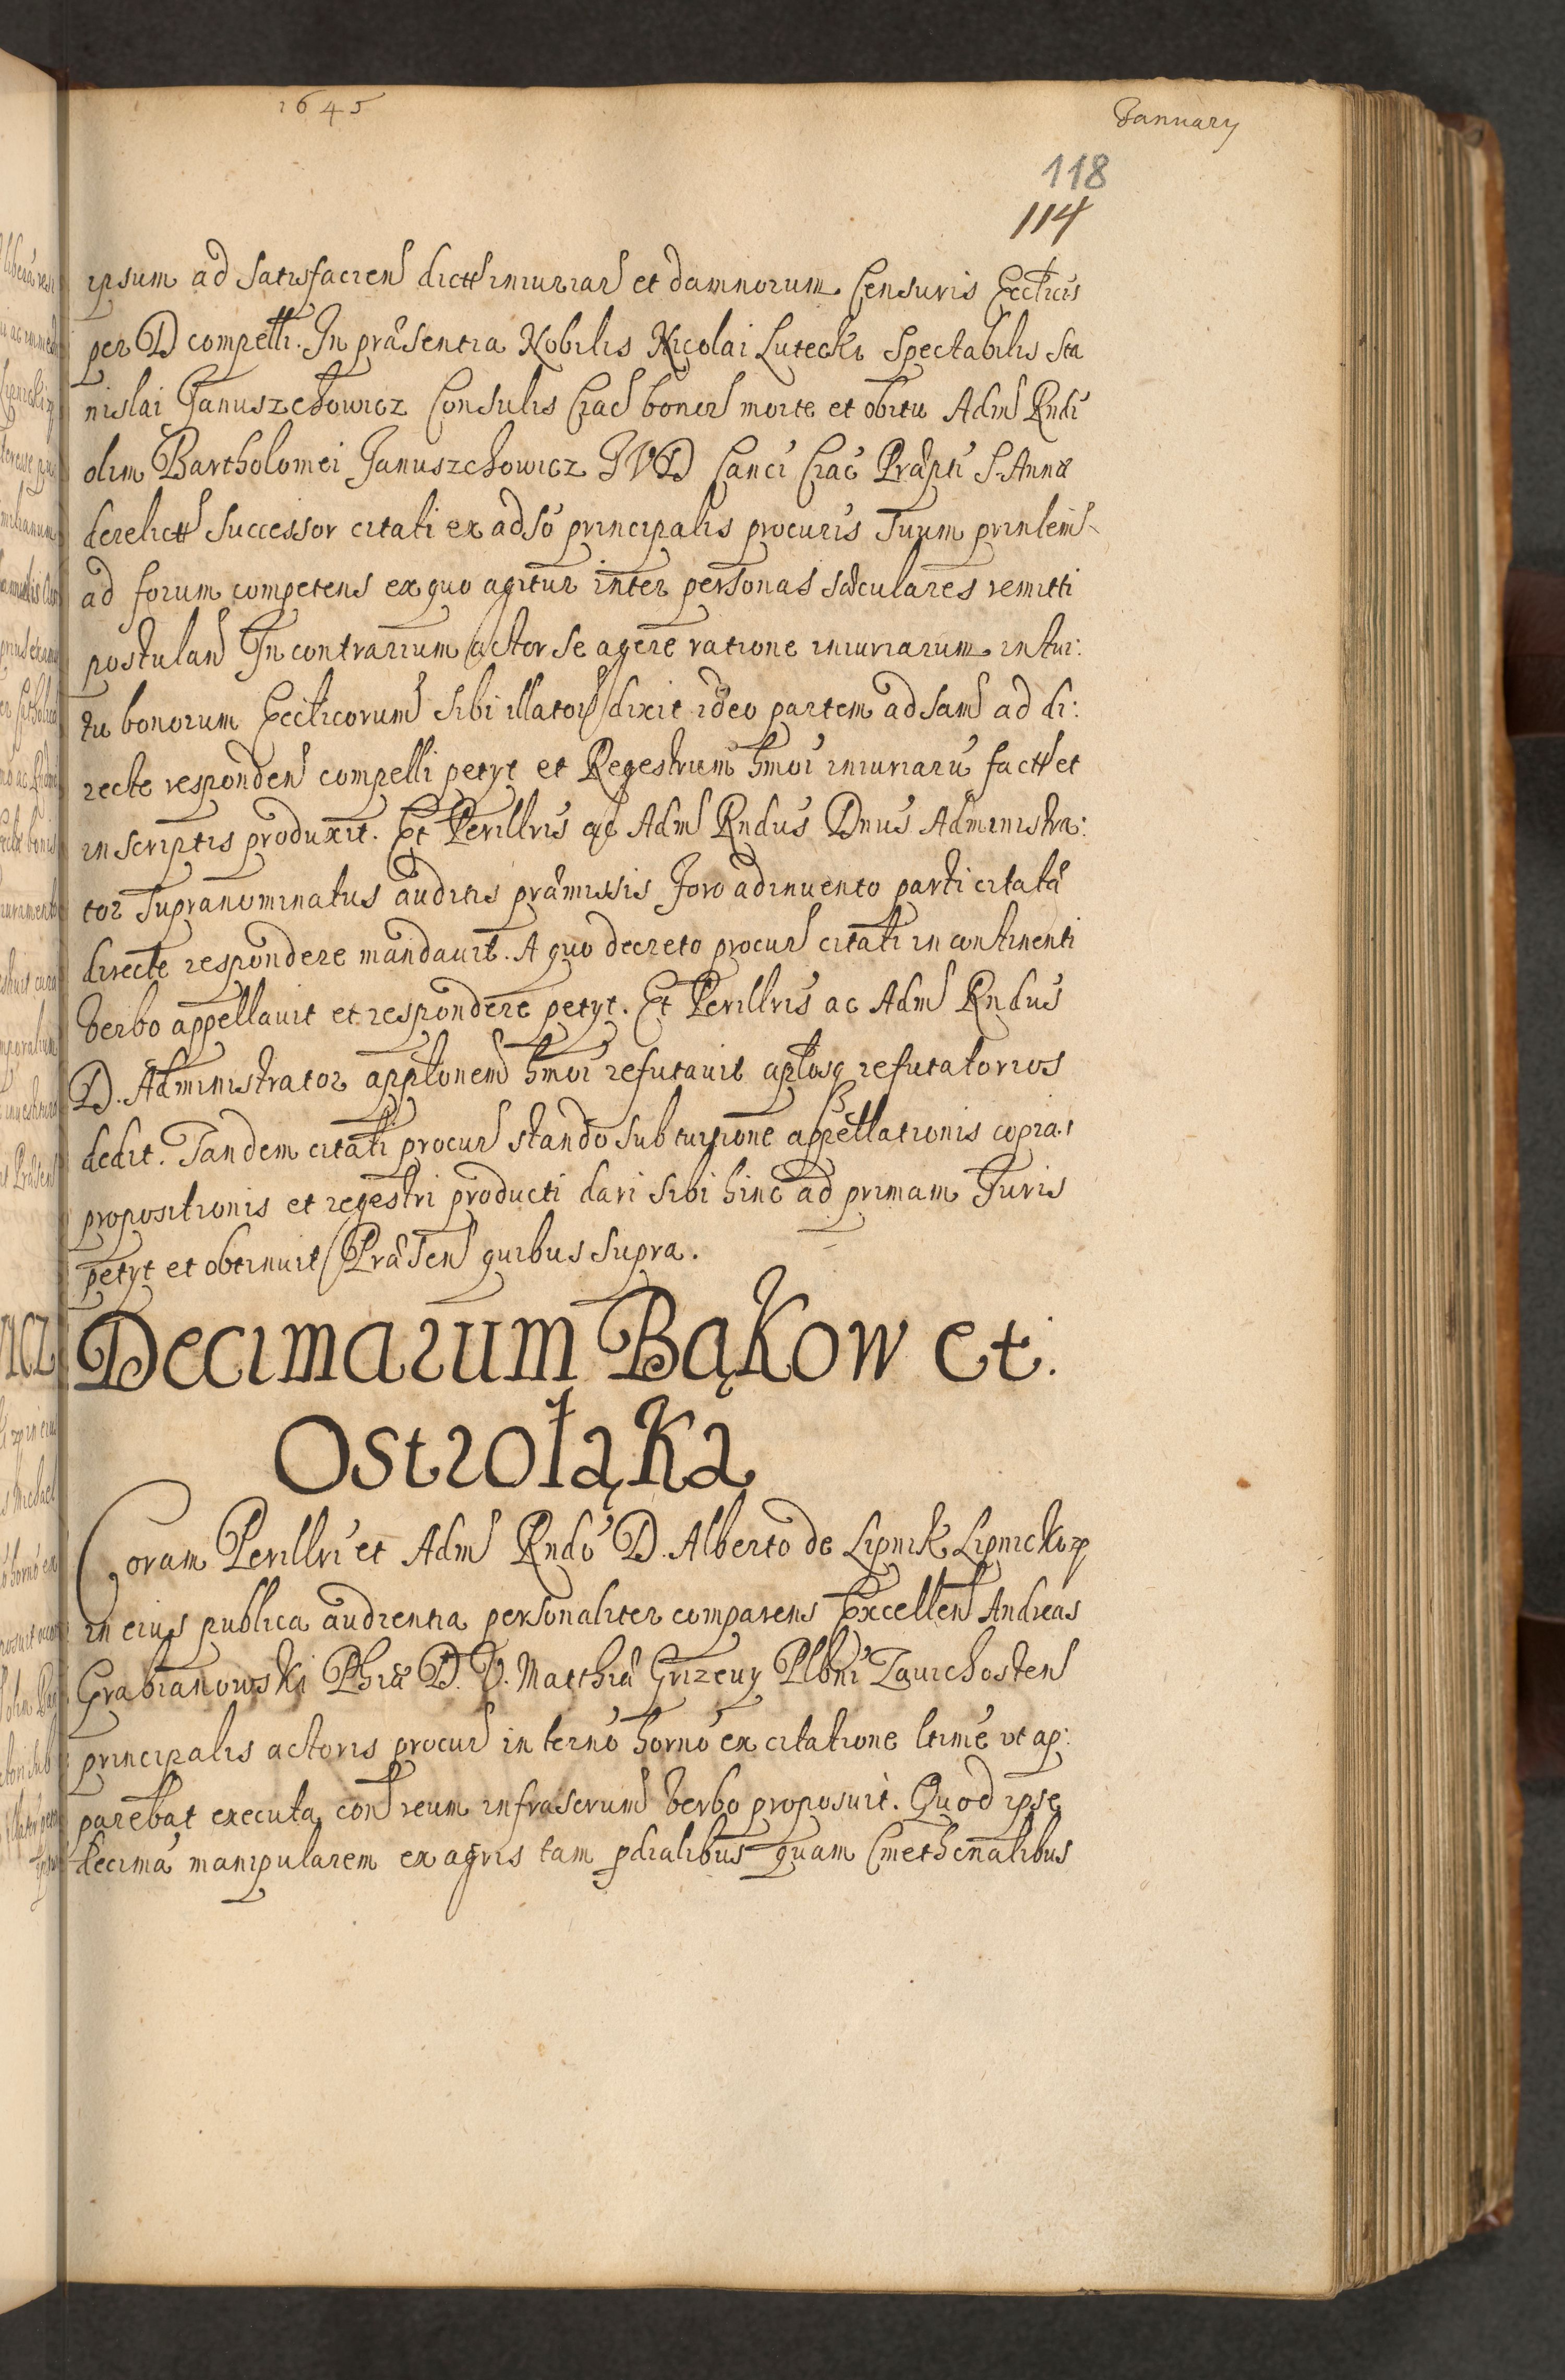 1645
January
118
114
ipsum ad satisfacien dictt iniuriar et damnorum Censuris Ecclicis
per D compelli. In präsentia Nobilis Nicolai Lutecki Spectabilis Sta
nislai Januszchowicz Consulis Crac bonor morte et obitu Adm Rndi
olim Bartholomei Januszchowicz JVD Canci Crac Präpti S. Annæ
derelictt Successor citati ex adso principalis procuris Suum prinlem
ad forum competens ex quo agitur inter personas sæculares remitti
postulan In contrarium actor se agere ratione iniuriarum intui:
tu bonorum Ecclicorum sibi illator dixit ideo partem adsam ad di:
recte responden compelli petyt et Regestrum hmoi iniuriarū factt et
in scriptis produxit. Et Perillris ac Adm Rndus Dnus Administra:
tor Supranominatus auditis præmissis Foro adinuento parti citatæ
directe respondere mandauit. A quo decreto procur citati in continenti
verbo appellauit et respondere petyt. Et Perillris ac Adm Rndus
D. Administrator applonem hmoi refutauit aplosq refutatorios
dedit. Tandem citati procur stando sub tuitione appellationis copias
propositionis et regestri producti dari sibi hinc ad primam Juris
petyt et obtinuit Præsen quibus supra.
Decimarum Bąkow et.
Ostrołąka
Coram Perillri et Adm Rndo D. Alberto de Lipnik Lipnicki p
in eius publica audientia personaliter comparens Excellen Andreas
Grabianowski Phiæ D. V. Matthiæ Grizewy Plbni Zawichosten
principalis actoris procur in terno horno ex citatione ltime vt ap:
parebat executa, con reum infrascrum verbo proposuit. Quod ipse
decimā manipularem ex agris tam pdialibus quam Cmethonalibus